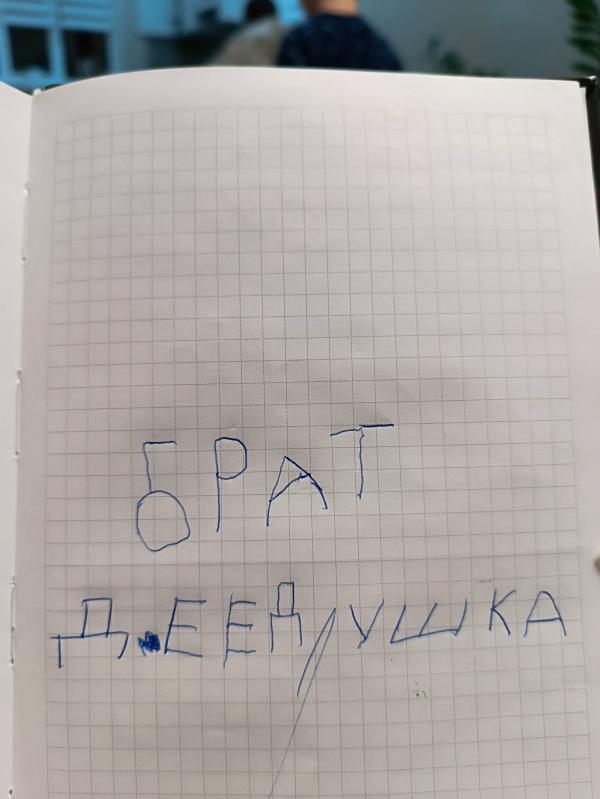 БРАТ
ДЕЕДУШКА